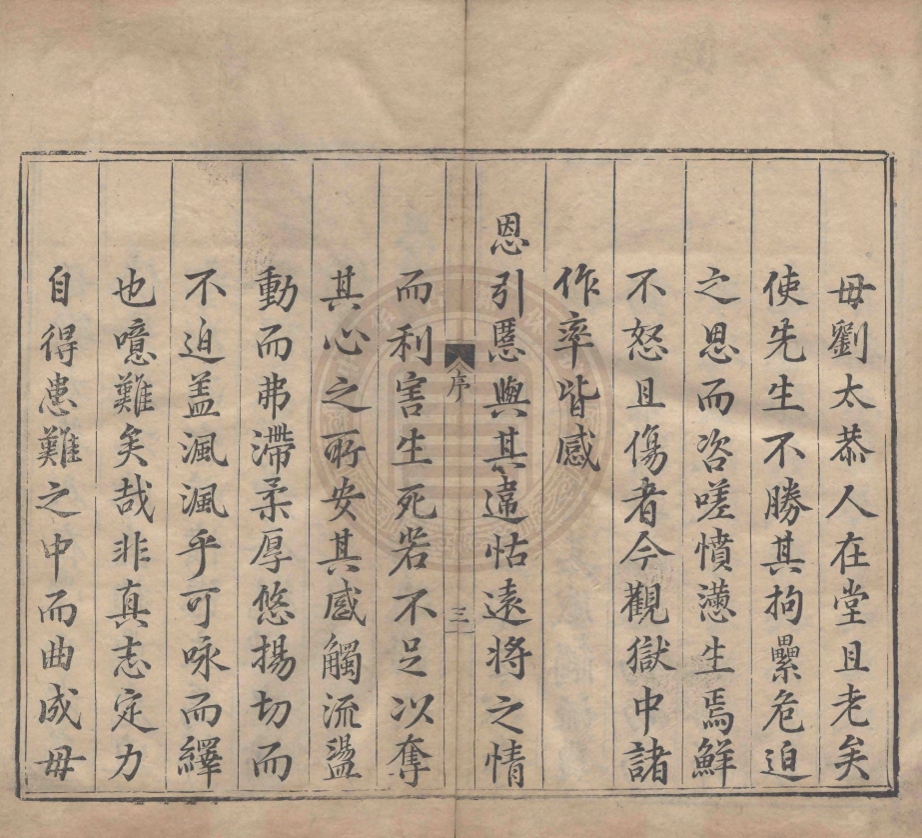 毋劉太恭人在堂且老矣
使先生不勝其拘纍危迫
之恩而咨嗟憤懑生焉鮮
不怒且傷者今觀獄中諸
作率皆感
恩引慝與其違怙遠將之情
序
三
而利害生死若不足以奪
其心之所安其感觸流盪
動而弗滯柔厚悠揚切而
不迫盖渢渢乎可咏而繹
也噫難矣哉非真志定力
自得患難之中而曲成毋